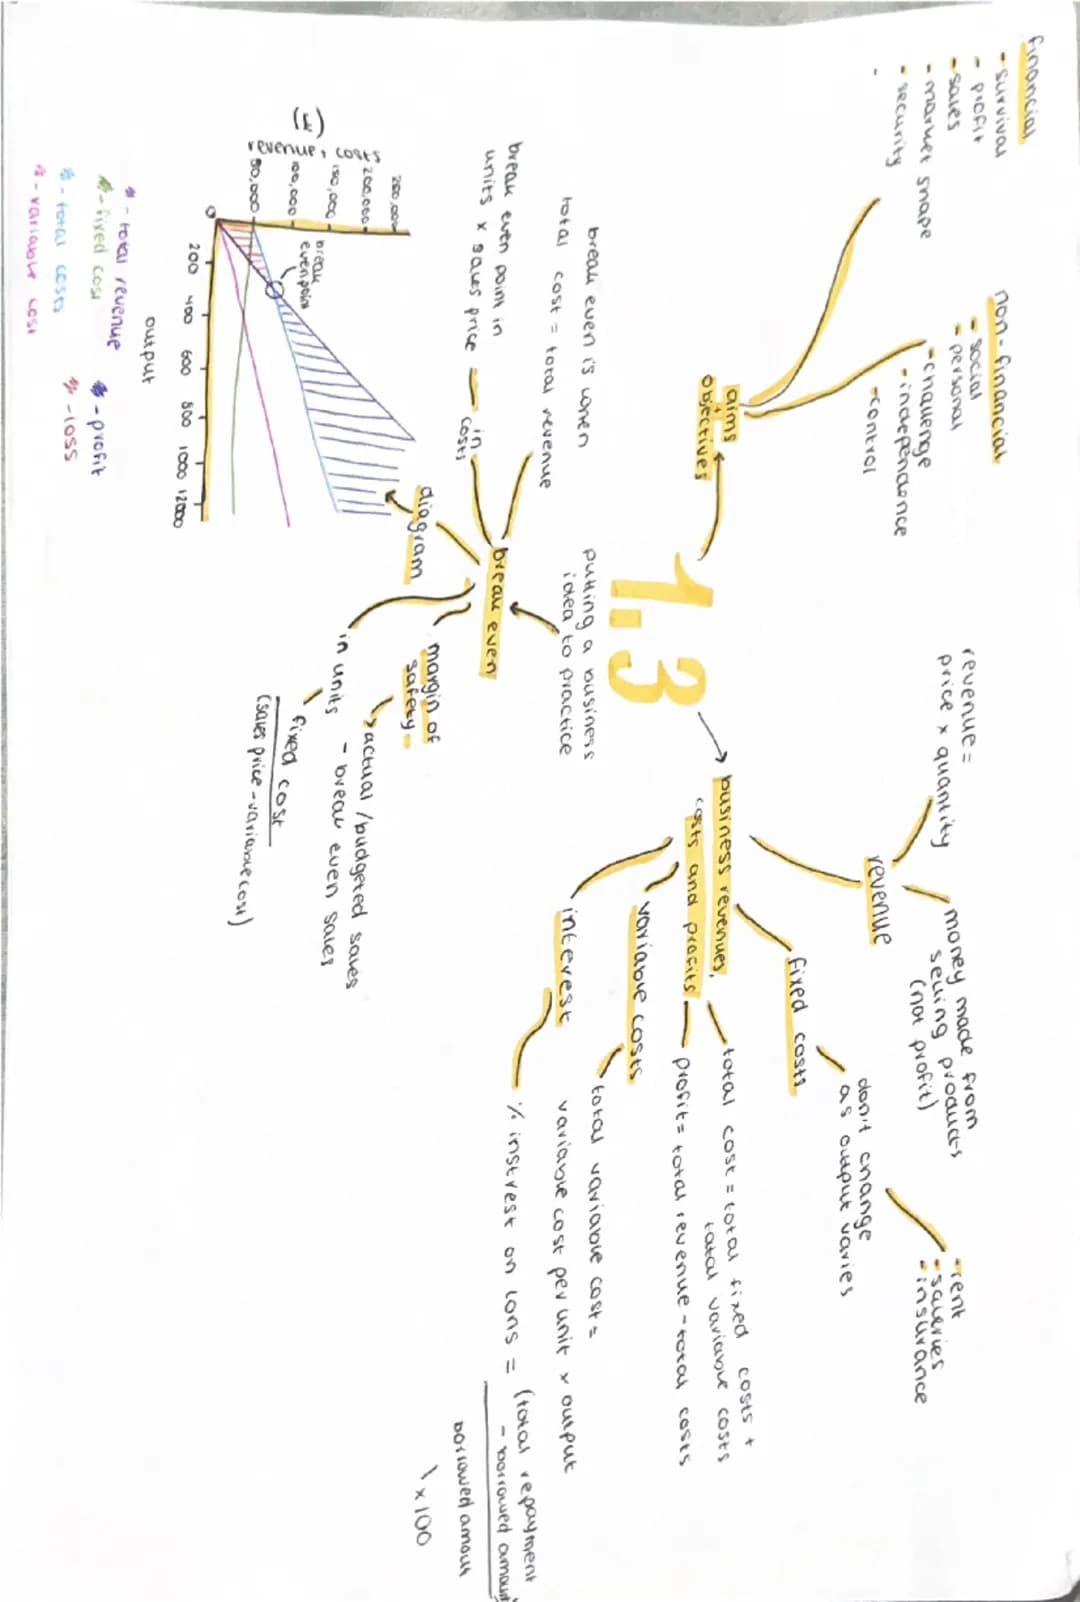 financial
- survival
- profit
- sales
- market shape
- security
-
non-financial
- social
- personal
- challenge
- independence
- control
aims
+
objectives
1.3
putting a business
idea to practice
revenue =
price x quantity
revenue
money made from
selling products
(not profit)
fixed costs
don't change
as output varies
- rent
- saleries
- insurance
business revenues,
costs and profits
total cost = total fixed costs +
total variable costs
profit = total revenue - total costs
variable costs
total variable cost =
variable cost per unit x output
interest
% instrest on lons = (total repayment
- borrowed amount
borrowed amout
x 100
break even
break even is when
total cost = total revenue
break even point in
units x sales price
in
costs
diagram
margin of
safety
actual / budgeted sales
- break even sales
in units
fixed cost
(sales price - variable cost)
(£)
revenue, costs
250,000
200,000
150,000
100,000
50,000
0
break
even point
200 400 600 800 1000 12000
output
* - total revenue
* - fixed cost
* - total costs
* - variable cost
* - profit
* - loss